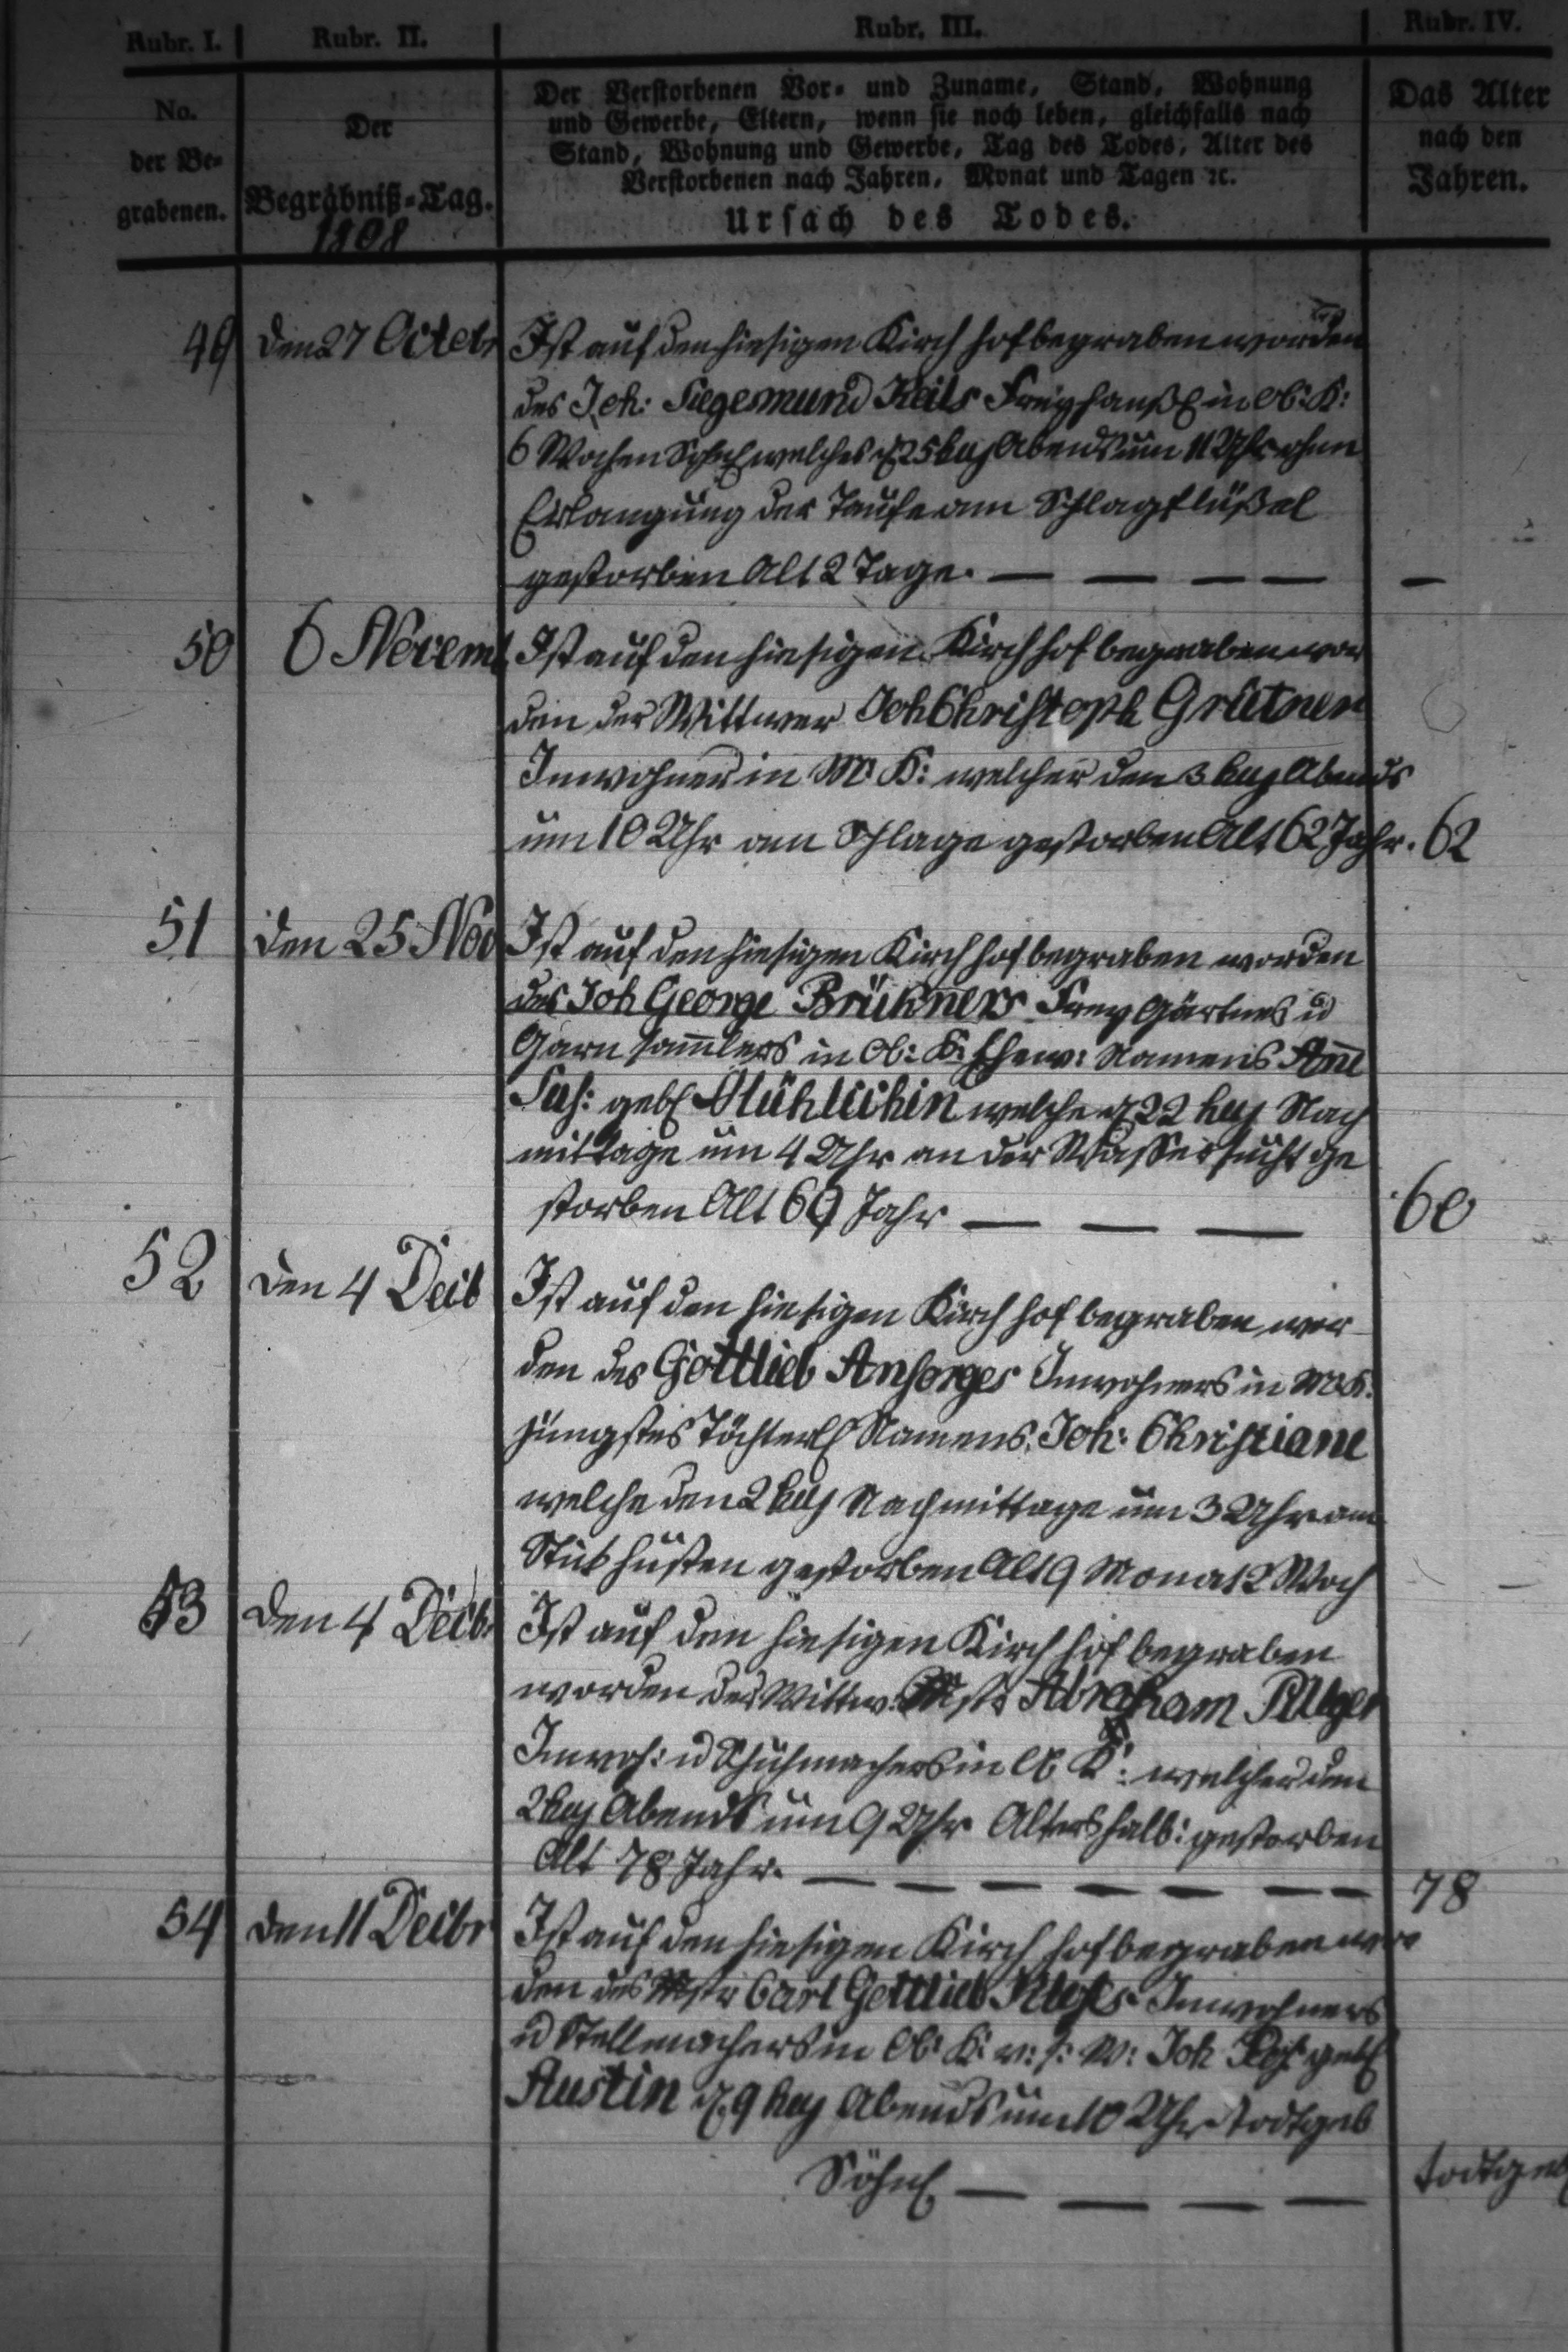 Rubr. I. Rubr. II. Rubr. III. Rubr. IV.
No.
der Be=
grabenen.
Der
Begräbniß=Tag.
1808
Der Verstorbenen Vor= und Zuname, Stand, Wohnung
und Gewerbe, Eltern, wenn sie noch leben, gleichfalls nach
Stand, Wohnung und Gewerbe, Tag des Todes, Alter des
Verstorbenen nach Jahren, Monat und Tagen ꝛc.
Ursach des Todes.
Das Alter
nach den
Jahren.
49 den 27 Octobr Ist auf den hiesigen Kirch hof begraben worden
des Joh: Siegesmund Keils Freyhausl in Ob: K:
6 Wochen welches d 25 huj Abends um 11 Uhr ohne
Erlangung der Taufe am Schlagflüßel
gestorben Alt 2 Tage. — — — — —
50 6 Novemb Ist auf den hiesigen Kirch hof begraben wor
den der Wittwer Joh Christoph Grütner
Inwohner in M: K: welcher den 3 huj Abends
um 10 Uhr am Schlage gestorben Alt 62 Jahr. 62
51 den 25 Nov Ist auf den hiesigen Kirch hof begraben worden
des Joh George Brükners Frey Gärtners u
Garn samlers in Ob: K: Ehew: Namens Ane
Sus: geb welche d 22 huj Nach
mittage um 4 Uhr an der Wassersucht ge
storben Alt 60 Jahr — — — 60
52 den 4 Decb Ist auf den hiesigen Kirch hof begraben wor
den des Gottlieb Ansorges Inwohners in M: K:
jüngstes Töchterl Namens: Joh: Christiane
welche den 2 huj Nachmittage um 3 Uhr am
Stikhusten gestorben Alt 9 Monat 2 Woch —
53 den 4 Decbr Ist auf den hiesigen Kirch hof begraben
worden der Wittw: Mstr Abraham
Inwoh: u Schuhmachers in Ob K: welcher den
2 huj Abends um 9 Uhr Altershalb: gestorben
Alt 78 Jahr. — — — — — — — 78
54 den 11 Decbr Ist auf den hiesigen Kirch hof begraben wor
den des Mstr Carl Gottlieb Inwohners
u Stellmachers in Ob: K: v: s: W: Joh Ros: geb
Austin d 9 huj Abends um 10 Uhr todtgeb
Söhnl — — — — todtgeb